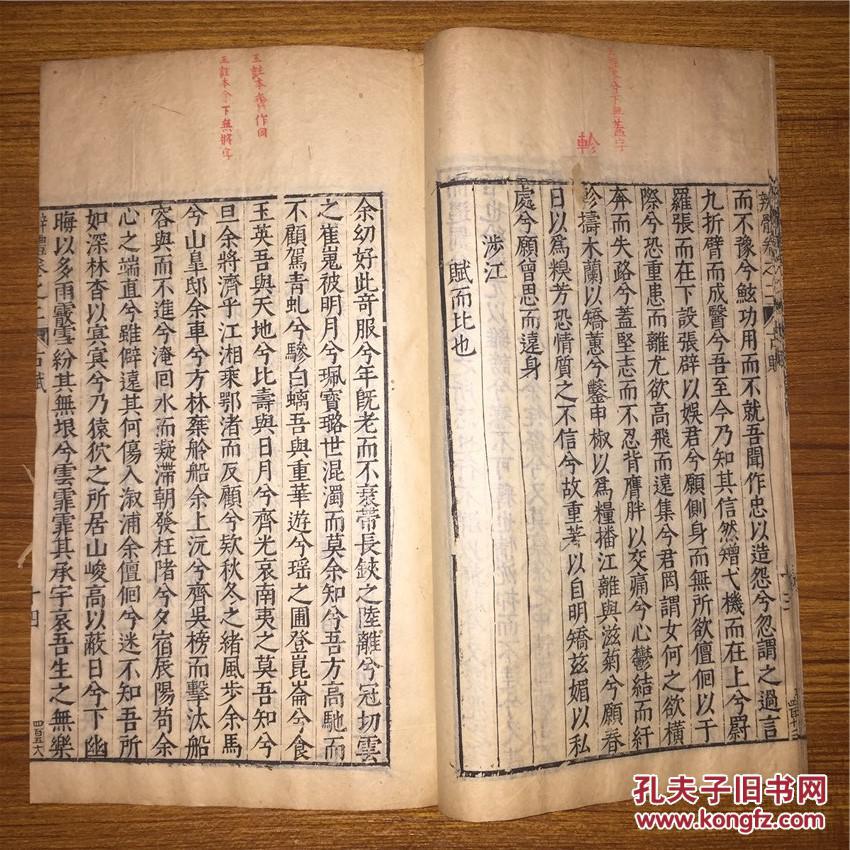 辨體卷之二
古賦
十三
而不豫兮鮌功用而不就吾聞作忠以造怨兮忽謂之過言
九折臂而成醫兮吾至今乃知其信然矰弋機而在上兮罻
羅張而在下設張辟以娛君兮願側身而無所欲儃佪以干
際兮恐重患而離尤欲高飛而遠集兮君罔謂女何之欲橫
奔而失路兮蓋堅志而不忍背膺胖以交痛兮心鬱結而紆
軫擣木蘭以矯蕙兮鑿申椒以為糧播江離與滋菊兮願春
日以為糗芳恐情質之不信兮故重著以自明矯兹媚以私
處兮願曾思而遠身
涉江
賦而比也
軫
王註本兮下無蓋字
王註本齊作同
王註本余下無將字
余幼好此奇服兮年既老而不衰帶長鋏之陸離兮冠切雲
之崔嵬被明月兮珮寶璐世混濁而莫余知兮吾方高馳而
不顧駕青虬兮驂白螭吾與重華遊兮瑶之圃登崑崙兮食
玉英吾與天地兮比壽與日月兮齊光哀南夷之莫吾知兮
旦余將濟乎江湘乘鄂渚而反顧兮欸秋冬之緒風步余馬
兮山皐邸余車兮方林椉舲船余上沅兮齊吳榜而擊汰船
容與而不進兮淹回水而凝滯朝發枉陼兮夕宿辰陽苟余
心之端直兮雖僻遠其何傷入溆浦余儃佪兮迷不知吾所
如深林杳以冥冥兮乃猿狖之所居山峻高以蔽日兮下幽
晦以多雨霰雪紛其無垠兮雲霏霏其承宇哀吾生之無樂
辨體卷之二
古賦
十四
四百五六
孔夫子旧书网
www.kongfz.com